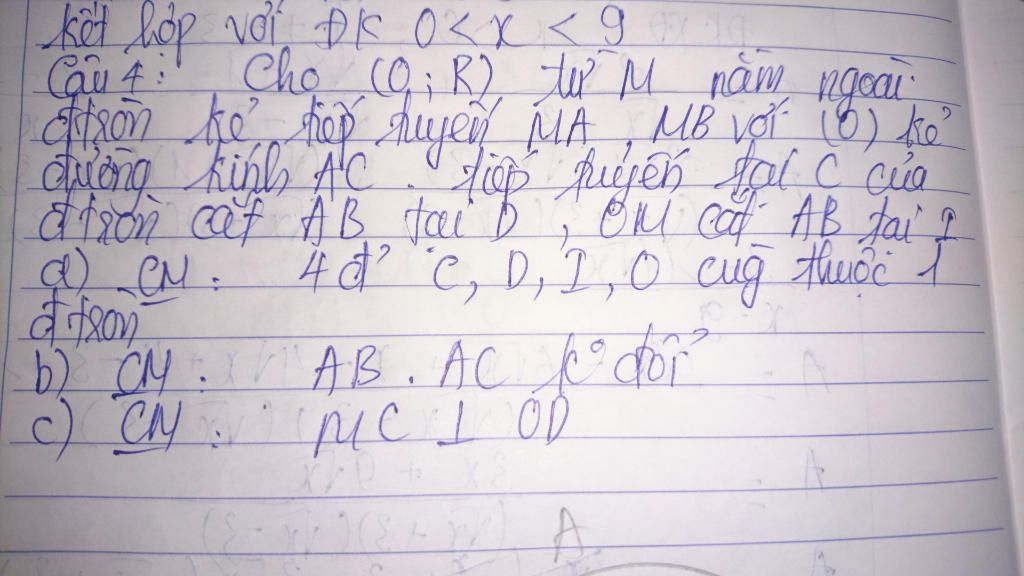 kết hợp với ĐK 0 < x < 9
Câu 4: Cho (O; R) từ M nằm ngoài
đtròn kẻ tiếp tuyến MA, MB với (O) kẻ
đường kính AC. tiếp tuyến tại C của
đtròn cắt AB tại D, OM cắt AB tại I
a) CM: 4 đ' C, D, I, O cùg thuộc 1
đtròn
b) CM: AB . AC k° đổi
c) CM: MC ⊥ OD
A